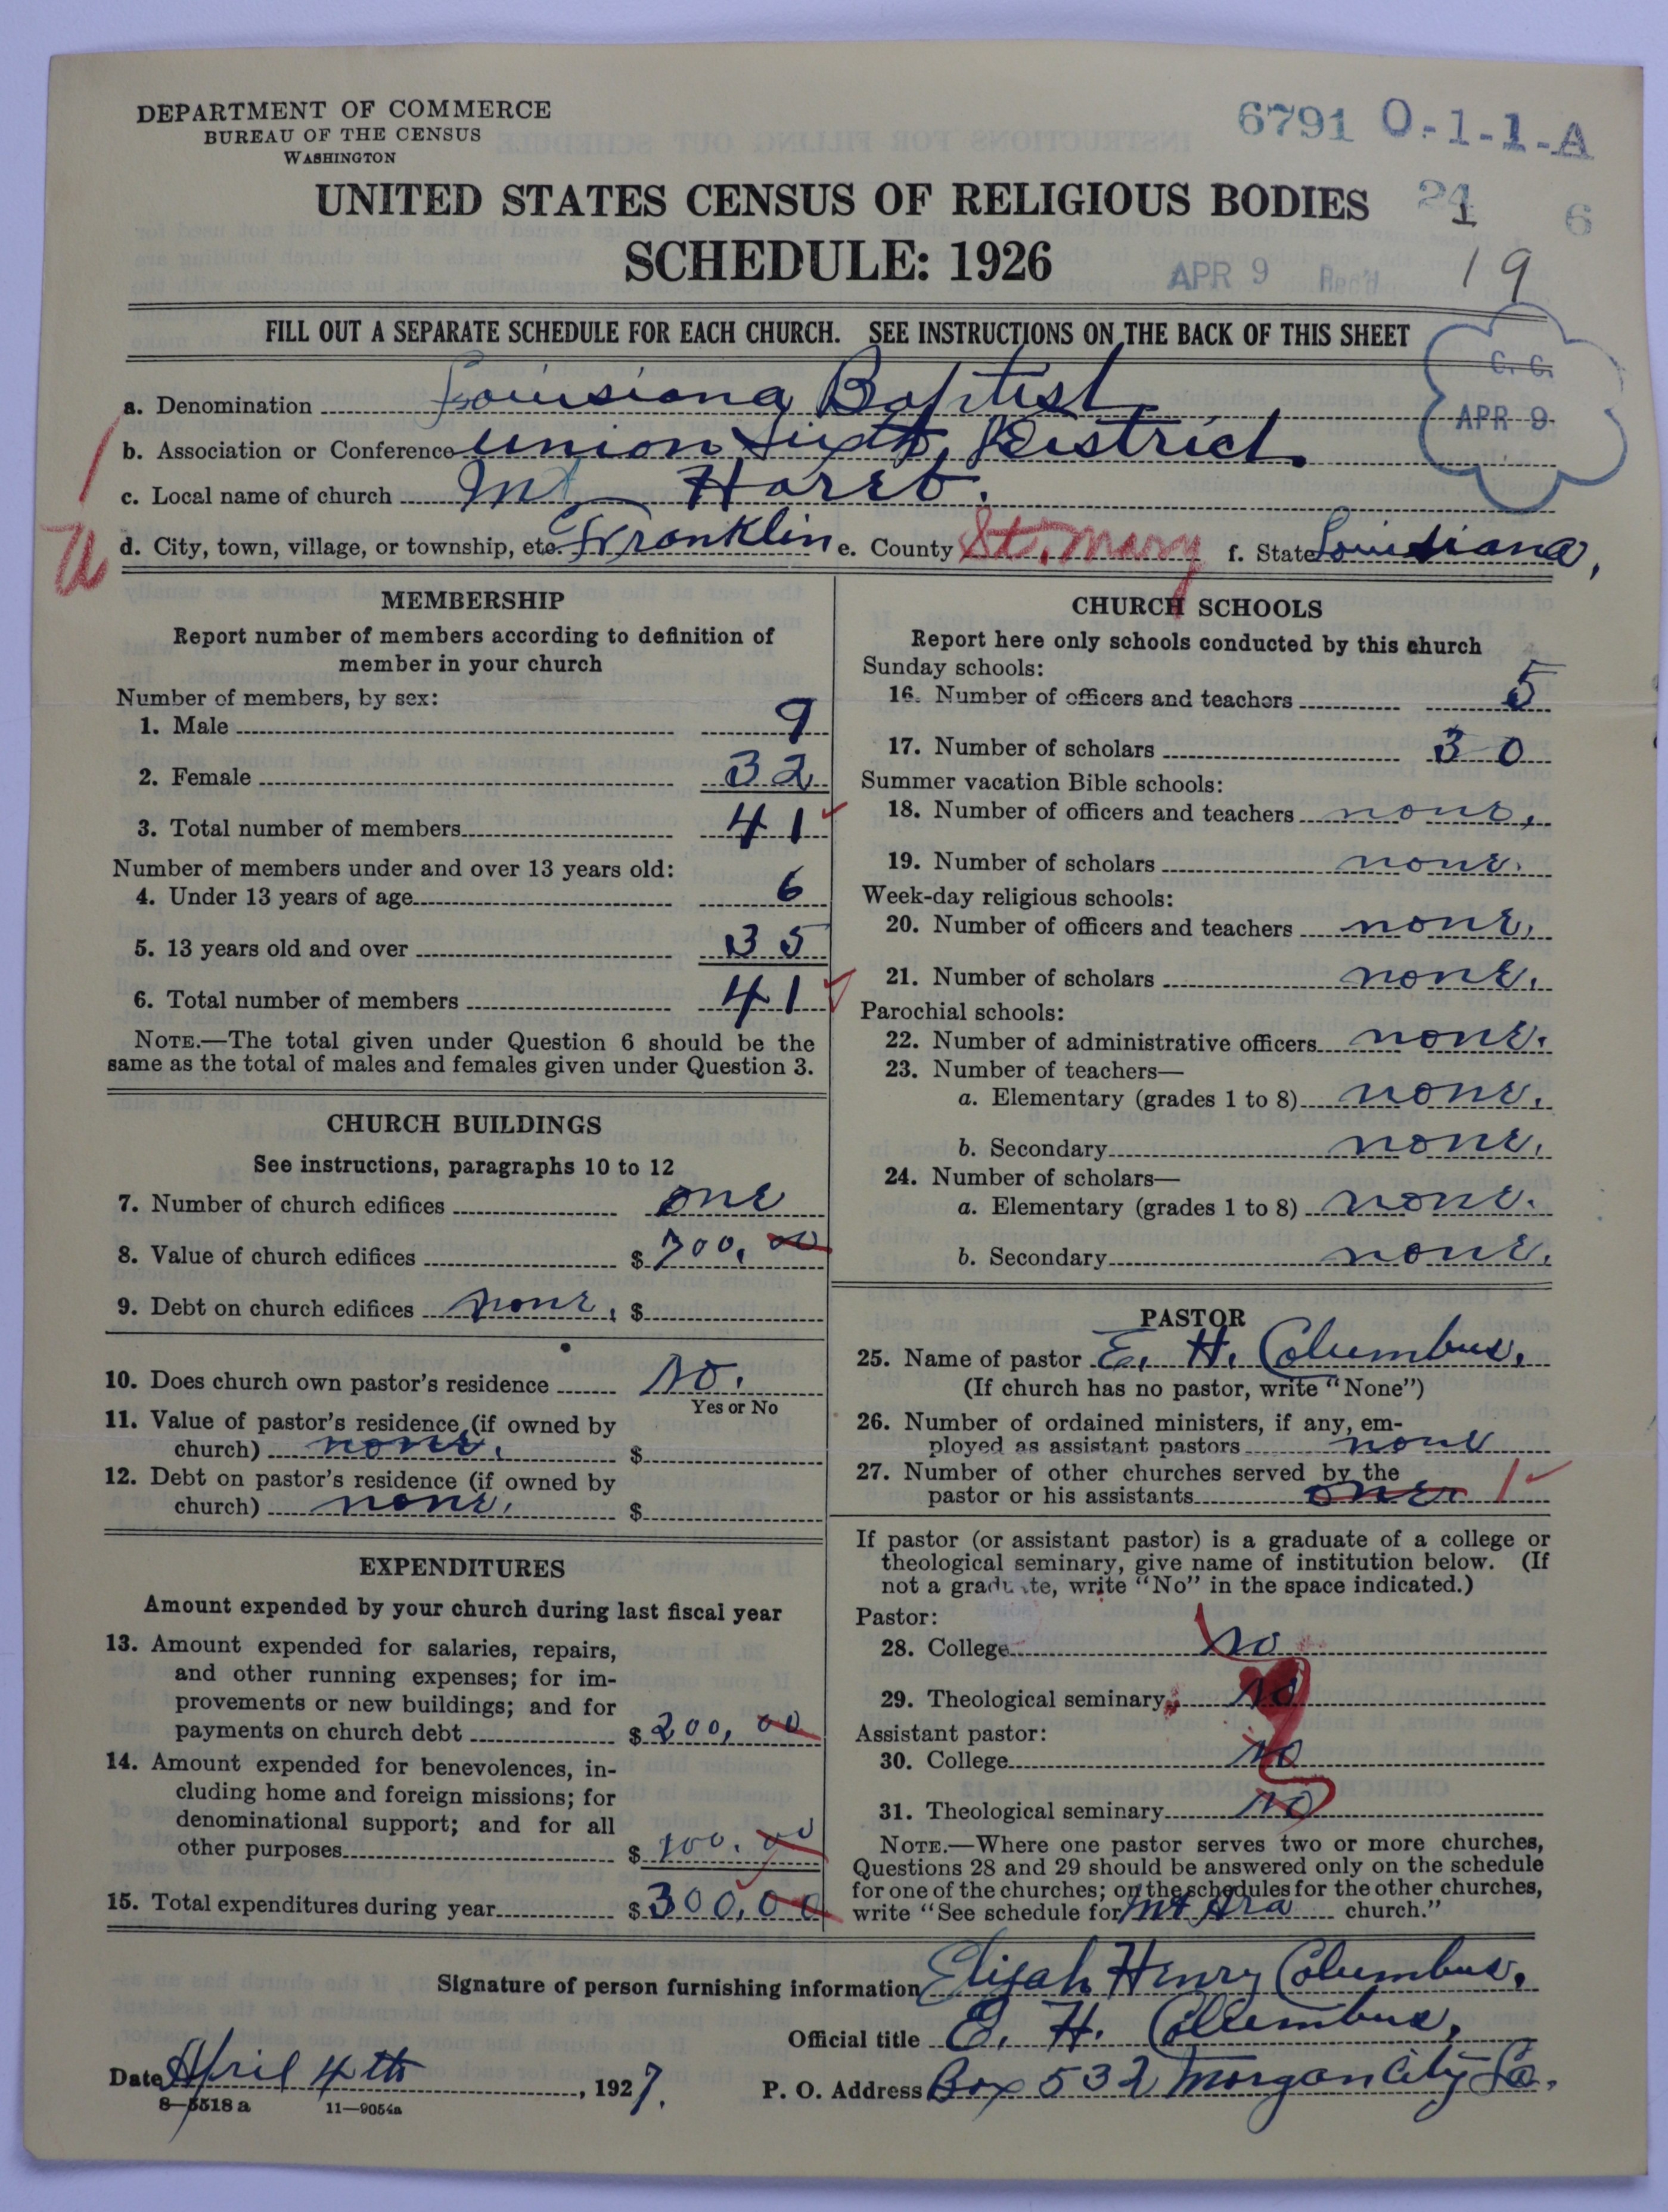 DEPARTMENT OF COMMERCE
BUREAU OF THE CENSUS
WASHINGTON
6791 O-1-1-A
UNITED STATES CENSUS OF RELIGIOUS BODIES
24
1
6
SCHEDULE: 1926
APR 9 Rec'd
19
FILL OUT A SEPARATE SCHEDULE FOR EACH CHURCH. SEE INSTRUCTIONS ON THE BACK OF THIS SHEET
C. C.
APR 9
a. Denomination Louisiana Baptist
b. Association or Conference union Sixth District.
c. Local name of church Mt Horeb.
d. City, town, village, or township, etc. Franklin e. County St. Mary f. State Louisiana,
MEMBERSHIP
Report number of members according to definition of
member in your church
Number of members, by sex:
1. Male 9
2. Female 32
3. Total number of members 41
Number of members under and over 13 years old:
4. Under 13 years of age 6
5. 13 years old and over 35
6. Total number of members 41
NOTE.—The total given under Question 6 should be the
same as the total of males and females given under Question 3.
CHURCH BUILDINGS
See instructions, paragraphs 10 to 12
7. Number of church edifices one
8. Value of church edifices $ 700. 00
9. Debt on church edifices none, $
10. Does church own pastor's residence No.
Yes or No
11. Value of pastor's residence (if owned by
church) none. $
12. Debt on pastor's residence (if owned by
church) none. $
EXPENDITURES
Amount expended by your church during last fiscal year
13. Amount expended for salaries, repairs,
and other running expenses; for im-
provements or new buildings; and for
payments on church debt $ 200, 00
14. Amount expended for benevolences, in-
cluding home and foreign missions; for
denominational support; and for all
other purposes $ 100. 00
15. Total expenditures during year $ 300,00
CHURCH SCHOOLS
Report here only schools conducted by this church
Sunday schools:
16. Number of officers and teachers 5
17. Number of scholars 30
Summer vacation Bible schools:
18. Number of officers and teachers none,
19. Number of scholars none.
Week-day religious schools:
20. Number of officers and teachers none,
21. Number of scholars none.
Parochial schools:
22. Number of administrative officers none.
23. Number of teachers—
a. Elementary (grades 1 to 8) none.
b. Secondary none.
24. Number of scholars—
a. Elementary (grades 1 to 8) none.
b. Secondary none.
PASTOR
25. Name of pastor E. H. Columbus.
(If church has no pastor, write "None")
26. Number of ordained ministers, if any, em-
ployed as assistant pastors none
27. Number of other churches served by the
pastor or his assistants one. 1
If pastor (or assistant pastor) is a graduate of a college or
theological seminary, give name of institution below. (If
not a graduate, write "No" in the space indicated.)
Pastor:
28. College No
29. Theological seminary No
Assistant pastor:
30. College No
31. Theological seminary No
NOTE.—Where one pastor serves two or more churches,
Questions 28 and 29 should be answered only on the schedule
for one of the churches; on the schedules for the other churches,
write "See schedule for Mt Ara church."
Signature of person furnishing information Elijah Henry Columbus.
Official title E. H. Columbus.
Date April 4th, 1927. P. O. Address Box 532 Morgan City La.
8-5518 a 11-9054a